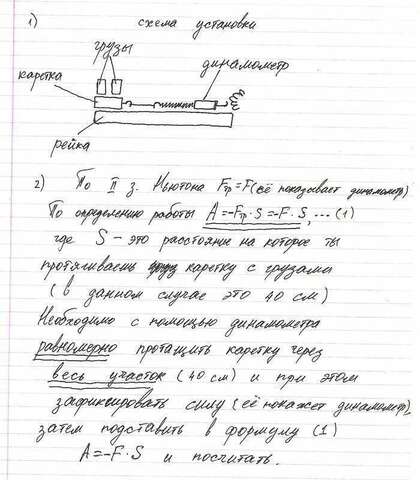 1) схема установки
грузы
каретка
динамометр
рейка
2) По II з. Ньютона Fтр=F(её показывает динамометр)
По определению работы A=-Fтр·S=-F·S, ... (1)
где S - это расстояние на которое ты
протягиваешь каретку с грузами
(в данном случае это 40 см)
Необходимо с помощью динамометра
равномерно протащить каретку через
весь участок (40 см) и при этом
зафиксировать силу (её покажет динамометр),
затем подставить в формулу (1)
A=-F·S и посчитать.